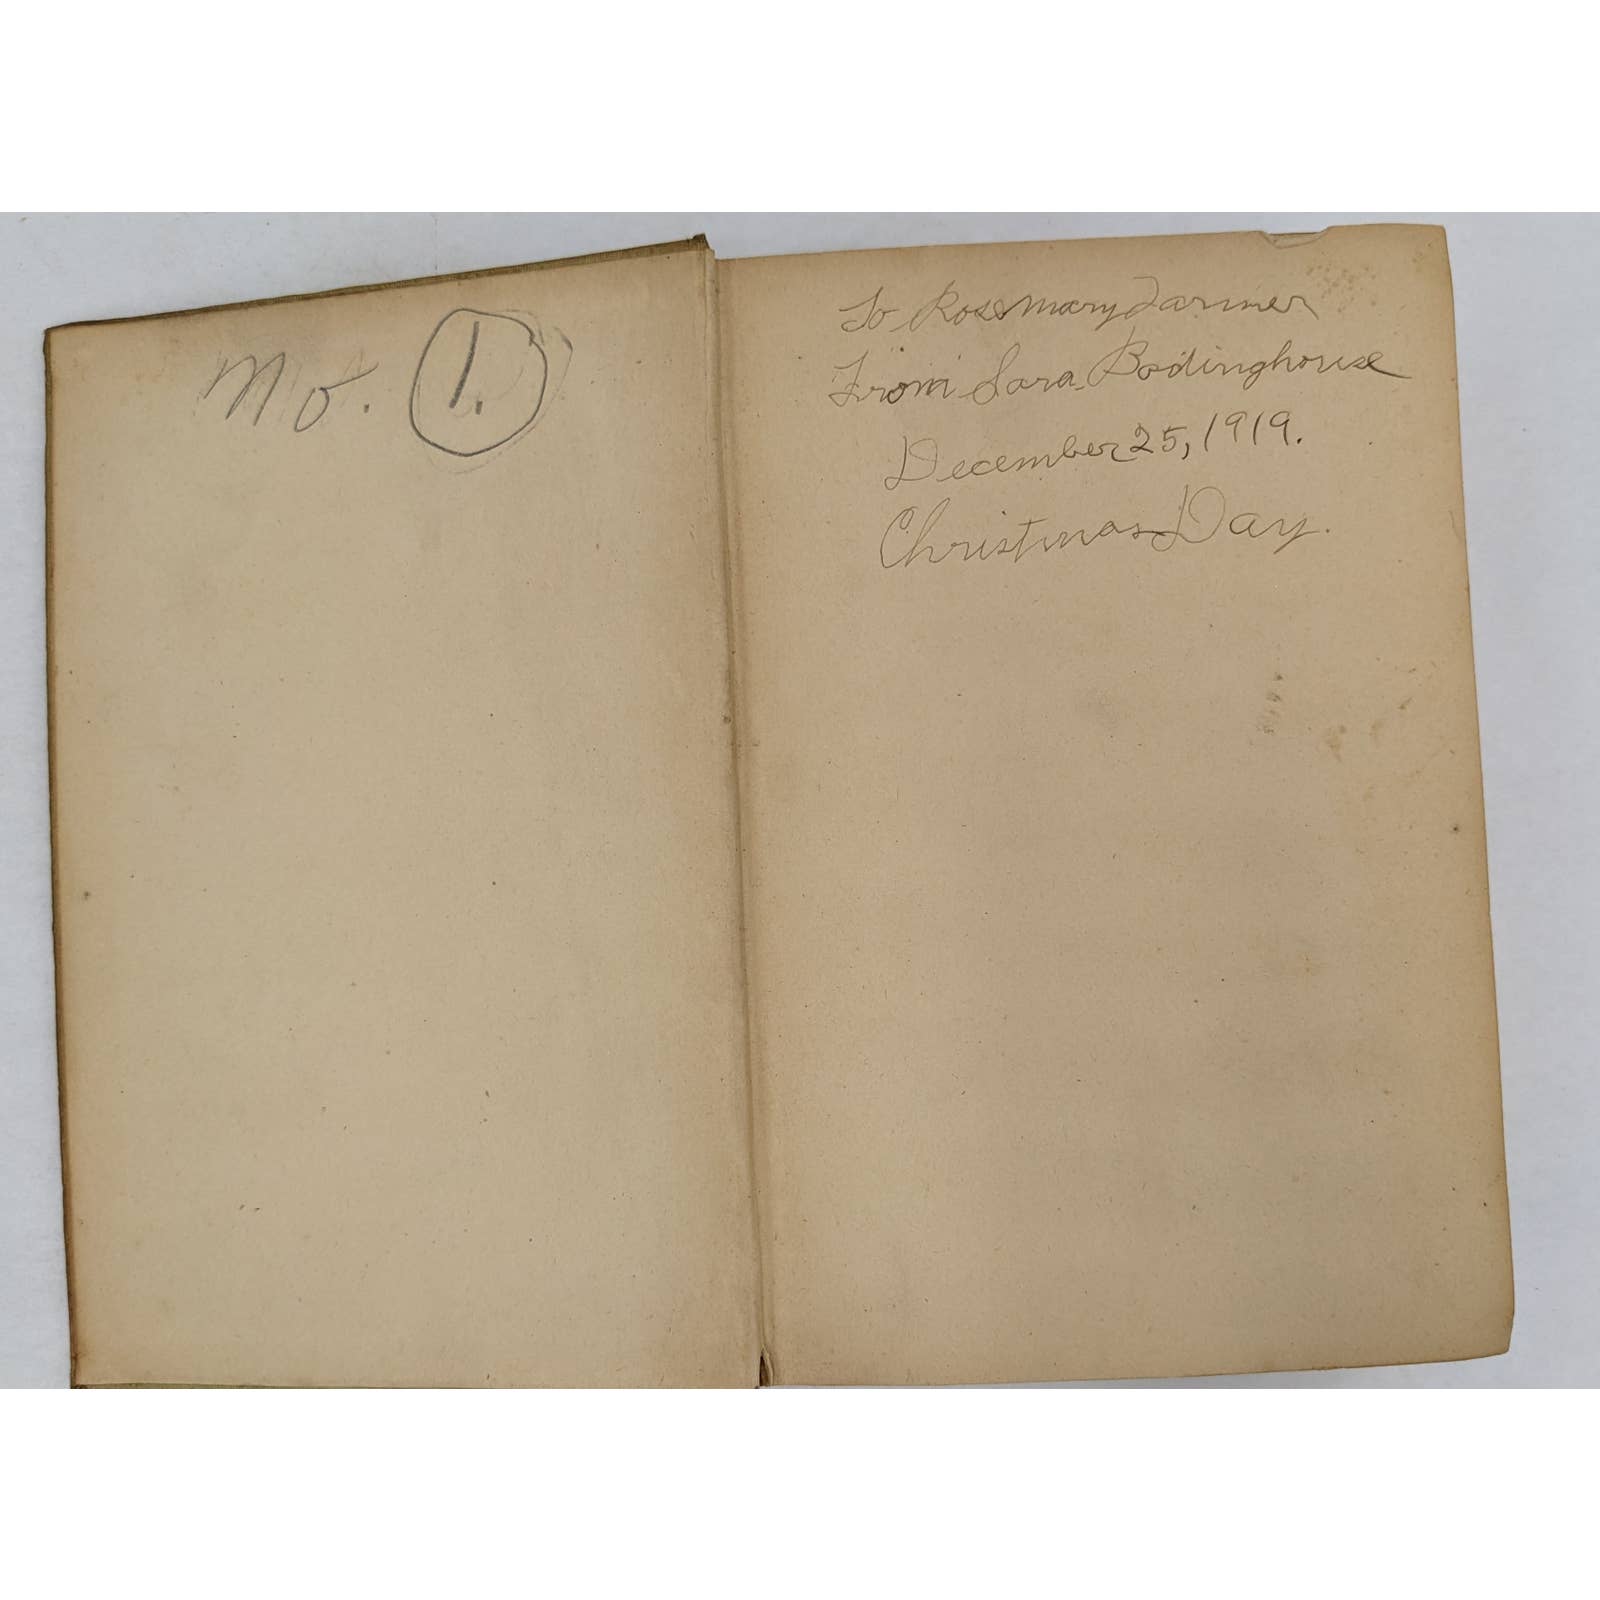 No. 1.
To Rosemary Farmer
From Sara Bodinghouse
December 25, 1919.
Christmas Day.